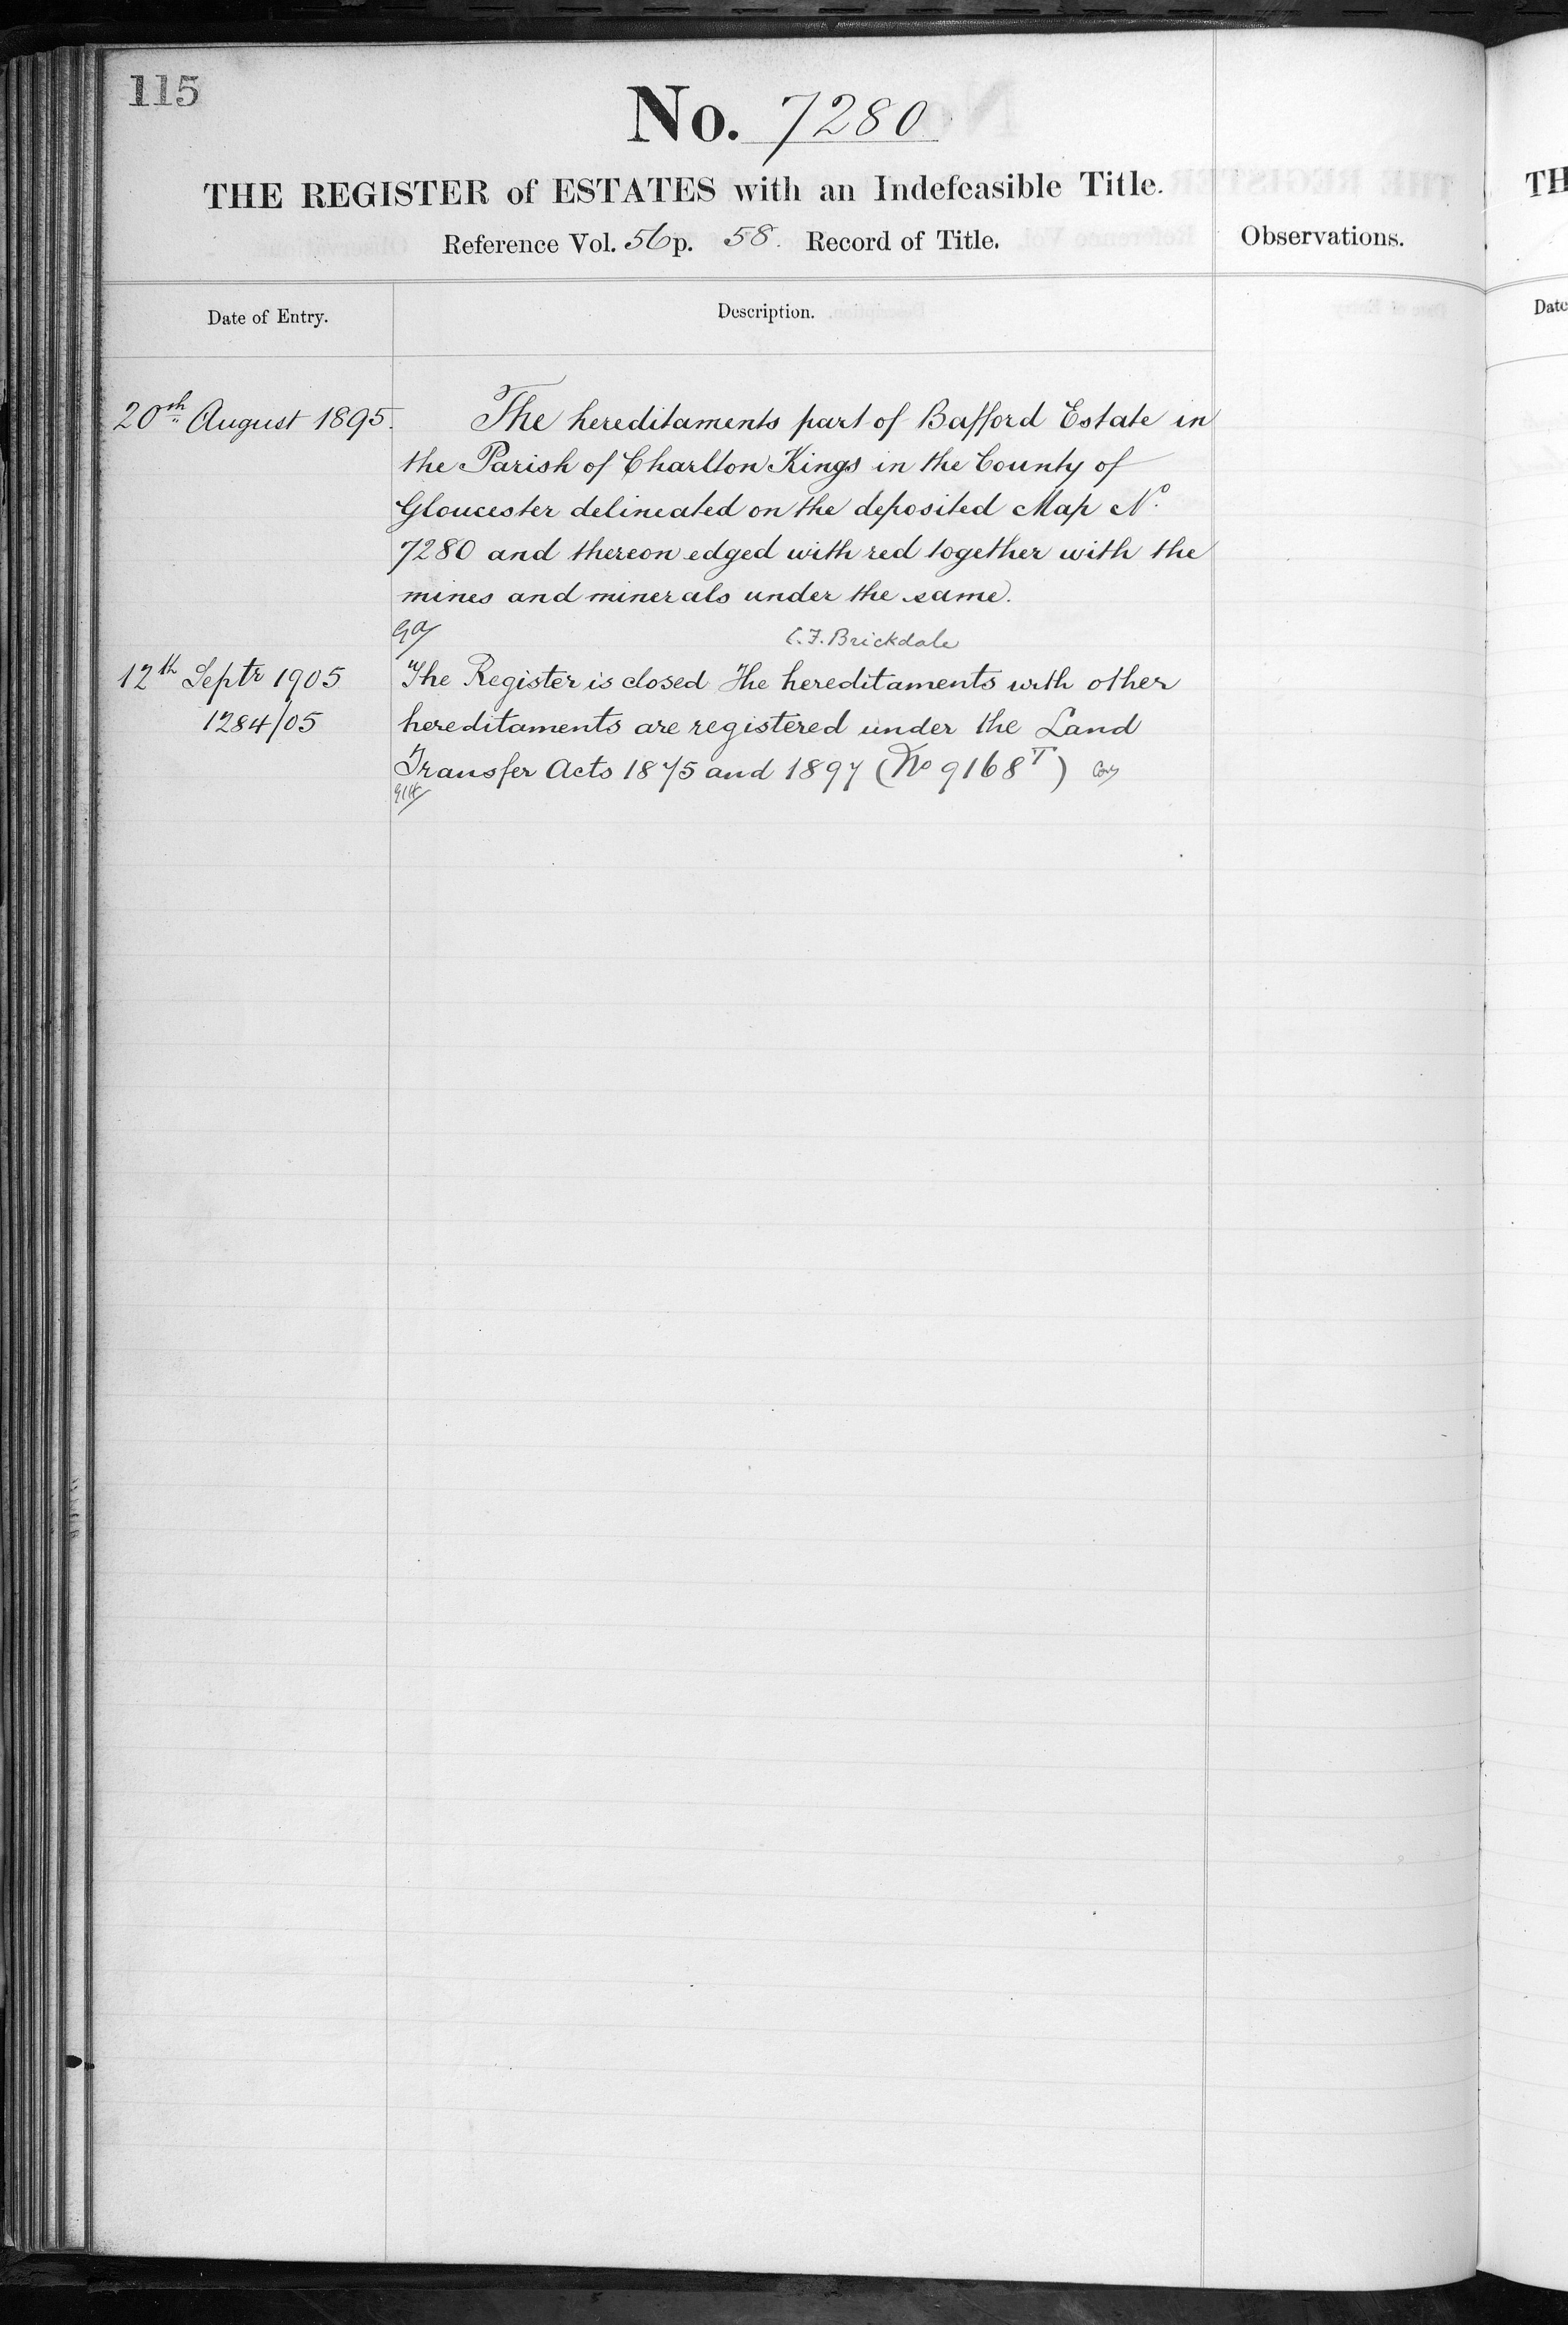 115
No. 7280
THE REGISTER of ESTATES with an Indefeasible Title.
Reference Vol. 56 p. 58. Record of Title.
Observations.
Date of Entry.
Description.
20th August 1895.
The hereditaments part of Bafford Estate in
the Parish of Charlton Kings in the County of
Gloucester delineated on the deposited Map No.
7280 and thereon edged with red together with the
mines and minerals under the same.
C.F. Brickdale
12th Septr 1905
1284/05
The Register is closed The hereditaments with other
hereditaments are registered under the Land
Transfer Acts 1875 and 1897 (No 9168T)
TH
Date